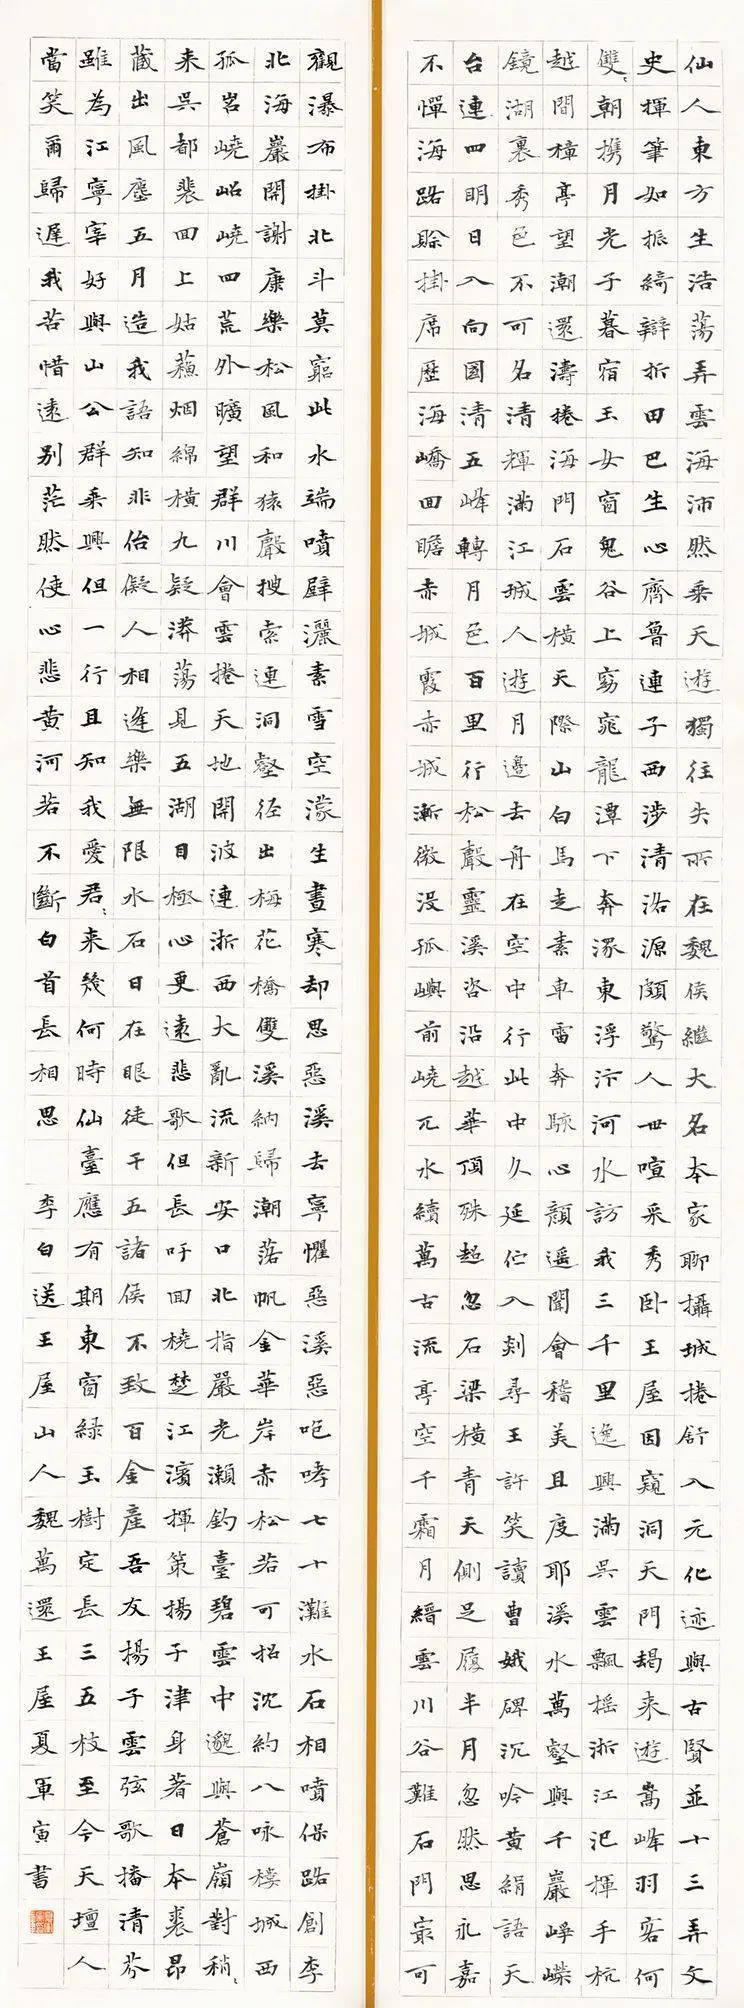 仙人東方生浩蕩弄雲海沛然乘天遊獨往失所在魏侯繼大名本家聊攝城捲舒入元化迹與古賢並十三弄文
史揮筆如振綺辯折田巴生心齊魯連子西涉清洛源頗驚人世喧采秀卧王屋因窺洞天門朅来遊嵩峰羽客何
雙〻朝携月光子暮宿玉女窗鬼谷上窈窕龍潭下奔潈東浮汴河水訪我三千里逸興滿呉雲飄颻浙江汜揮手杭
越間樟亭望潮還濤捲海門石雲橫天際山白馬走素車雷奔駭心顏遥聞會稽美且度耶溪水萬壑與千巖崢嶸
鏡湖裏秀色不可名清輝滿江城人遊月邊去舟在空中行此中久延佇入剡尋王許笑讀曹娥碑沉吟黄絹語天
台連四明日入向國清五峰轉月色百里行松聲靈溪咨沿越華頂殊超忽石梁橫青天側足履半月忽然思永嘉
不憚海路賒掛席歷海嶠回瞻赤城霞赤城漸微没孤嶼前嶢兀水續萬古流亭空千霜月縉雲川谷難石門最可
觀瀑布掛北斗莫窮此水端噴壁灑素雪空濛生晝寒却思惡溪去寧懼惡溪惡咆哮七十灘水石相噴保路創李
北海巖開謝康樂松風和猿聲搜索連洞壑徑出梅花橋雙溪納歸潮落帆金華岸赤松若可招沈約八咏樓城西
孤岧嶢岹嶢四荒外曠望群川會雲捲天地開波連浙西大亂流新安口北指嚴光瀨釣臺碧雲中邈與蒼嶺對稍〻
来呉都裴回上姑蘇烟綿橫九疑漭蕩見五湖目極心更遠悲歌但長吁回橈楚江濱揮策揚子津身著日本裘昂
藏出風塵五月造我語知非佁儗人相逢樂無限水石日在眼徒干五諸侯不致百金產吾友揚子雲弦歌播清芬
雖為江寧宰好與山公群乘興但一行且知我愛君〻来幾何時仙臺應有期東窗綠玉樹定長三五枝至今天壇人
當笑爾歸遲我苦惜遠別茫然使心悲黄河若不斷白首長相思 李白送王屋山人魏萬還王屋夏軍寅書